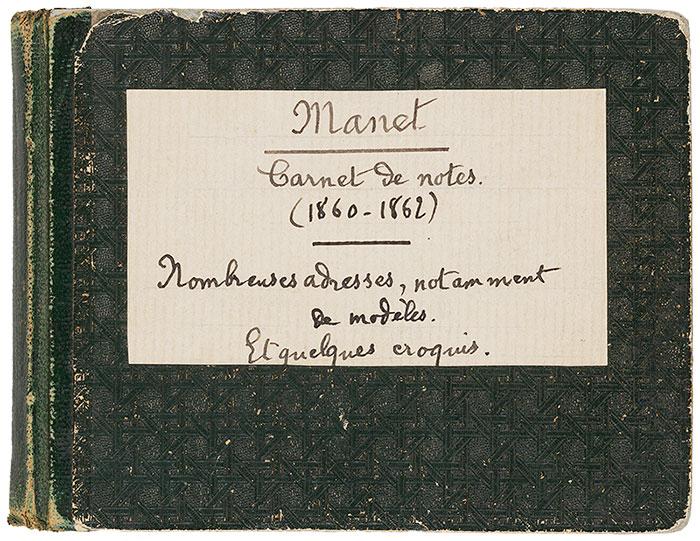 Manet
Carnet de notes.
(1860-1862)
Nombreuses adresses, notamment
de modèles.
Et quelques croquis.